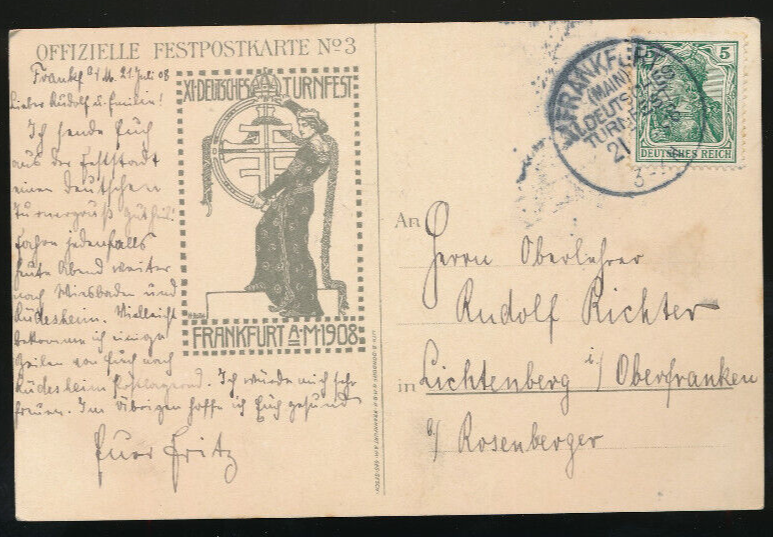 OFFIZIELLE FESTPOSTKARTE No 3
Frankf. a/M. 21. Juli 08
Lieber Rudolf u. Emilie!
Ich sende Euch
aus der Feststadt
einen deutschen
Turnergruß Gutheil!
Fahre jedenfalls
heute Abend weiter
nach Wiesbaden und
Rüdesheim. Vielleicht
bekomme ich einige
Zeilen von Euch nach
Rüdesheim postlagernd. Ich würde mich sehr
freuen. Im Übrigen hoffe ich Euch gesund
Euer Fritz
XI. DEUTSCHES TURNFEST
FRANKFURT A.M. 1908
FRANKFURT
(MAIN)
XI. DEUTSCHES
TURNFEST
21
3-4
5
DEUTSCHES REICH
An Herrn Oberlehrer
Rudolf Richter
in Lichtenberg i/ Oberfranken
b/ Rosenberger